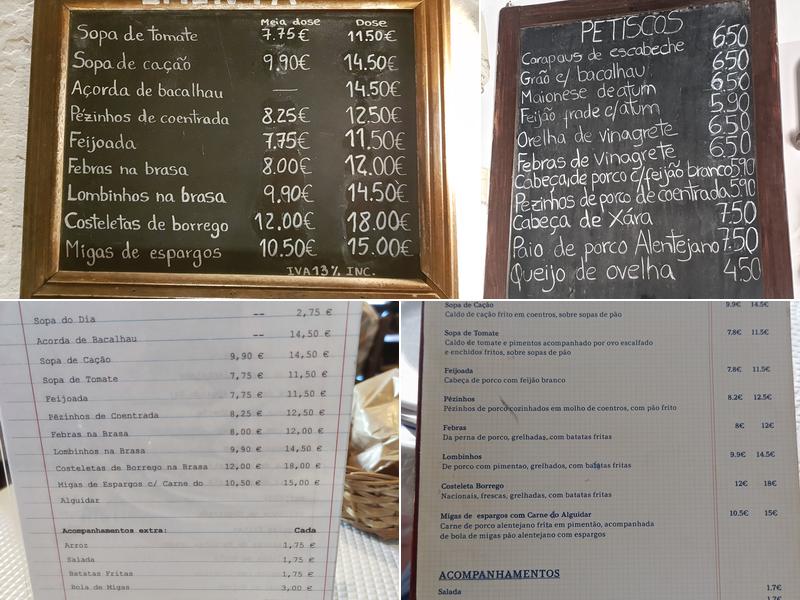 Meia dose Dose
Sopa de tomate 7.75€ 11.50€
Sopa de cação 9.90€ 14.50€
Açorda de bacalhau — 14.50€
Pézinhos de coentrada 8.25€ 12.50€
Feijoada 7.75€ 11.50€
Febras na brasa 8.00€ 12.00€
Lombinhos na brasa 9.90€ 14.50€
Costeletas de borrego 12.00€ 18.00€
Migas de espargos 10.50€ 15.00€
IVA 13% INC.
PETISCOS
Carapaus de escabeche 6.50
Grão c/ bacalhau 6.50
Maionese de atum 6.50
Feijão frade c/atum 5.90
Orelha de vinagrete 6.50
Febras de vinagrete 6.50
Cabeça de porco c/feijão branco 5.90
Pezinhos de porco de coentrada 5.90
Cabeça de Xára 7.50
Paio de porco Alentejano 7.50
Queijo de ovelha 4.50
Sopa do Dia -- 2,75 €
Acorda de Bacalhau -- 14,50 €
Sopa de Cação 9,90 € 14,50 €
Sopa de Tomate 7,75 € 11,50 €
Feijoada 7,75 € 11,50 €
Pézinhos de Coentrada 8,25 € 12,50 €
Febras na Brasa 8,00 € 12,00 €
Lombinhos na Brasa 9,90 € 14,50 €
Costeletas de Borrego na Brasa 12,00 € 18,00 €
Migas de Espargos c/ Carne do 10,50 € 15,00 €
Alguidar
Acompanhamentos extra: Cada
Arroz 1,75 €
Salada 1,75 €
Batatas Fritas 1,75 €
Bola de Migas 3,00 €
Sopa de Cação 9.9€ 14.5€
Caldo de cação frito em coentros, sobre sopas de pão
Sopa de Tomate 7.8€ 11.5€
Caldo de tomate e pimentos acompanhado por ovo escalfado
e enchidos fritos, sobre sopas de pão
Feijoada 7.8€ 11.5€
Cabeça de porco com feijão branco
Pézinhos 8.2€ 12.5€
Pézinhos de porco cozinhados em molho de coentros, com pão frito
Febras 8€ 12€
Da perna de porco, grelhadas, com batatas fritas
Lombinhos 9.9€ 14.5€
De porco com pimentao, grelhados, com batatas fritas
Costeleta Borrego 12€ 18€
Nacionais, frescas, grelhadas, com batatas fritas
Migas de espargos com Carne do Alguidar 10.5€ 15€
Carne de porco alentejano frita em pimentão, acompanhada
de bola de migas pão alentejano com espargos
ACOMPANHAMENTOS
Salada 1.7€
1.7€